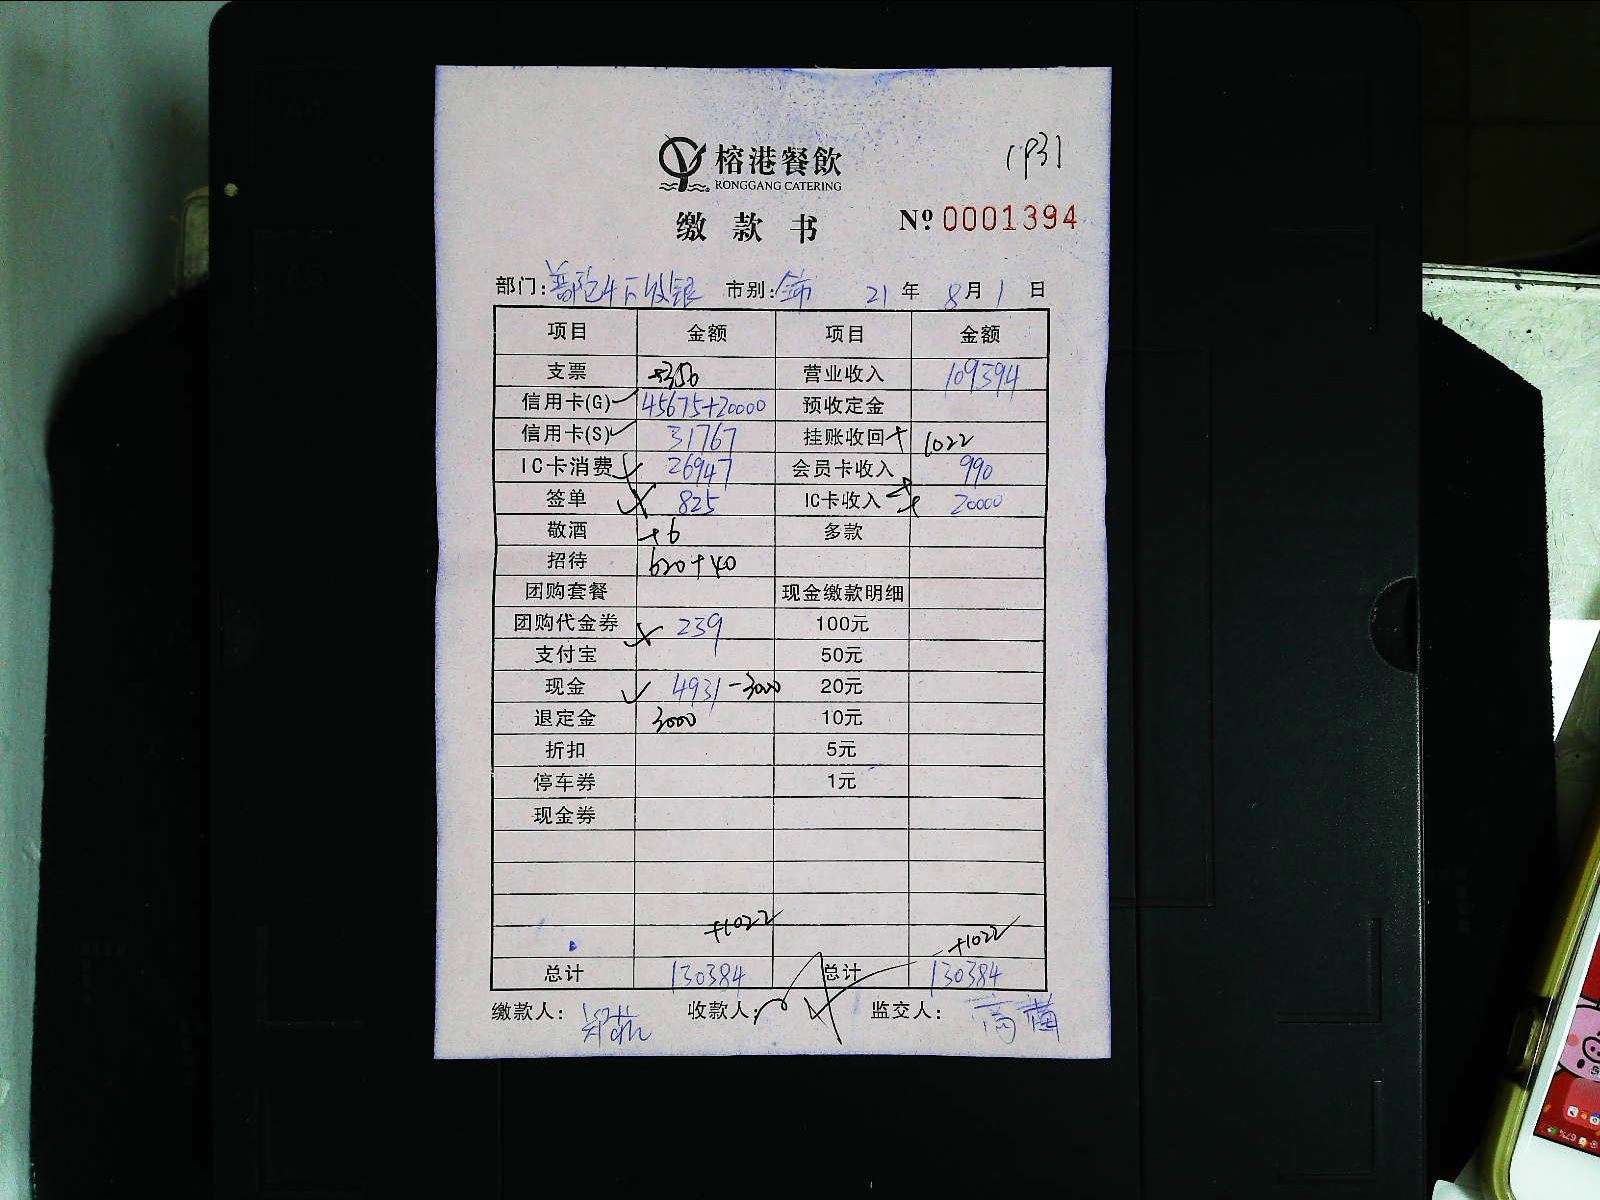 1931
榕港餐飲
RONGGANG CATERING
缴款书 Nº 0001394
部门:普陀4下收银 市别: 21年8月1日
项目 金额 项目 金额
支票 +350 营业收入 109394
信用卡(G) 45675+20000 预收定金
信用卡(S) 31767 挂账收回 + 1022
IC卡消费 26947 会员卡收入 990
签单 825 IC卡收入 20000
敬酒 +6 多款
招待 620+40
团购套餐 现金缴款明细
团购代金券 239 100元
支付宝 50元
现金 4931-3000 20元
退定金 3000 10元
折扣 5元
停车券 1元
现金券
+1022 +1022
总计 130384 总计 130384
缴款人: 收款人: 监交人: